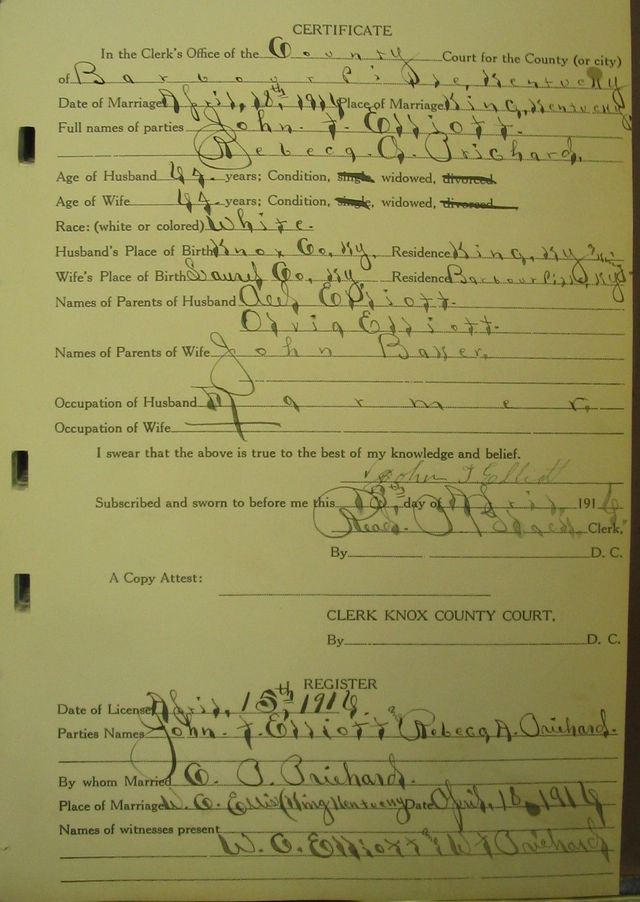 CERTIFICATE
In the Clerk's Office of the County Court for the County (or city)
of Barbourville, Kentucky
Date of Marriage April, 18th, 1916 Place of Marriage King, Kentucky
Full names of parties John. F. Elliott.
Rebecca. A. Prichard.
Age of Husband years; Condition, single, widowed, divorced
Age of Wife years; Condition, single, widowed, divorced
Race: (white or colored) White.
Husband's Place of Birth Knox Co, Ky. Residence King, Ky
Wife's Place of Birth Laurel Co, Ky. Residence Barbourville, Ky
Names of Parents of Husband Elliott.
Elliott.
Names of Parents of Wife John Baker.
Occupation of Husband Farmer.
Occupation of Wife
I swear that the above is true to the best of my knowledge and belief.
John F Elliott
Subscribed and sworn to before me this day of April, 1916
Read. P. Clerk.
By D. C.
A Copy Attest:
CLERK KNOX COUNTY COURT.
By D. C.
REGISTER
Date of License April, 15th, 1916.
Parties Names John. F. Elliott & Rebecca A. Prichard.
By whom Married Prichard.
Place of Marriage W. C. King Kentucky Date April, 18, 1916
Names of witnesses present
W. C. Elliott & W F Prichard